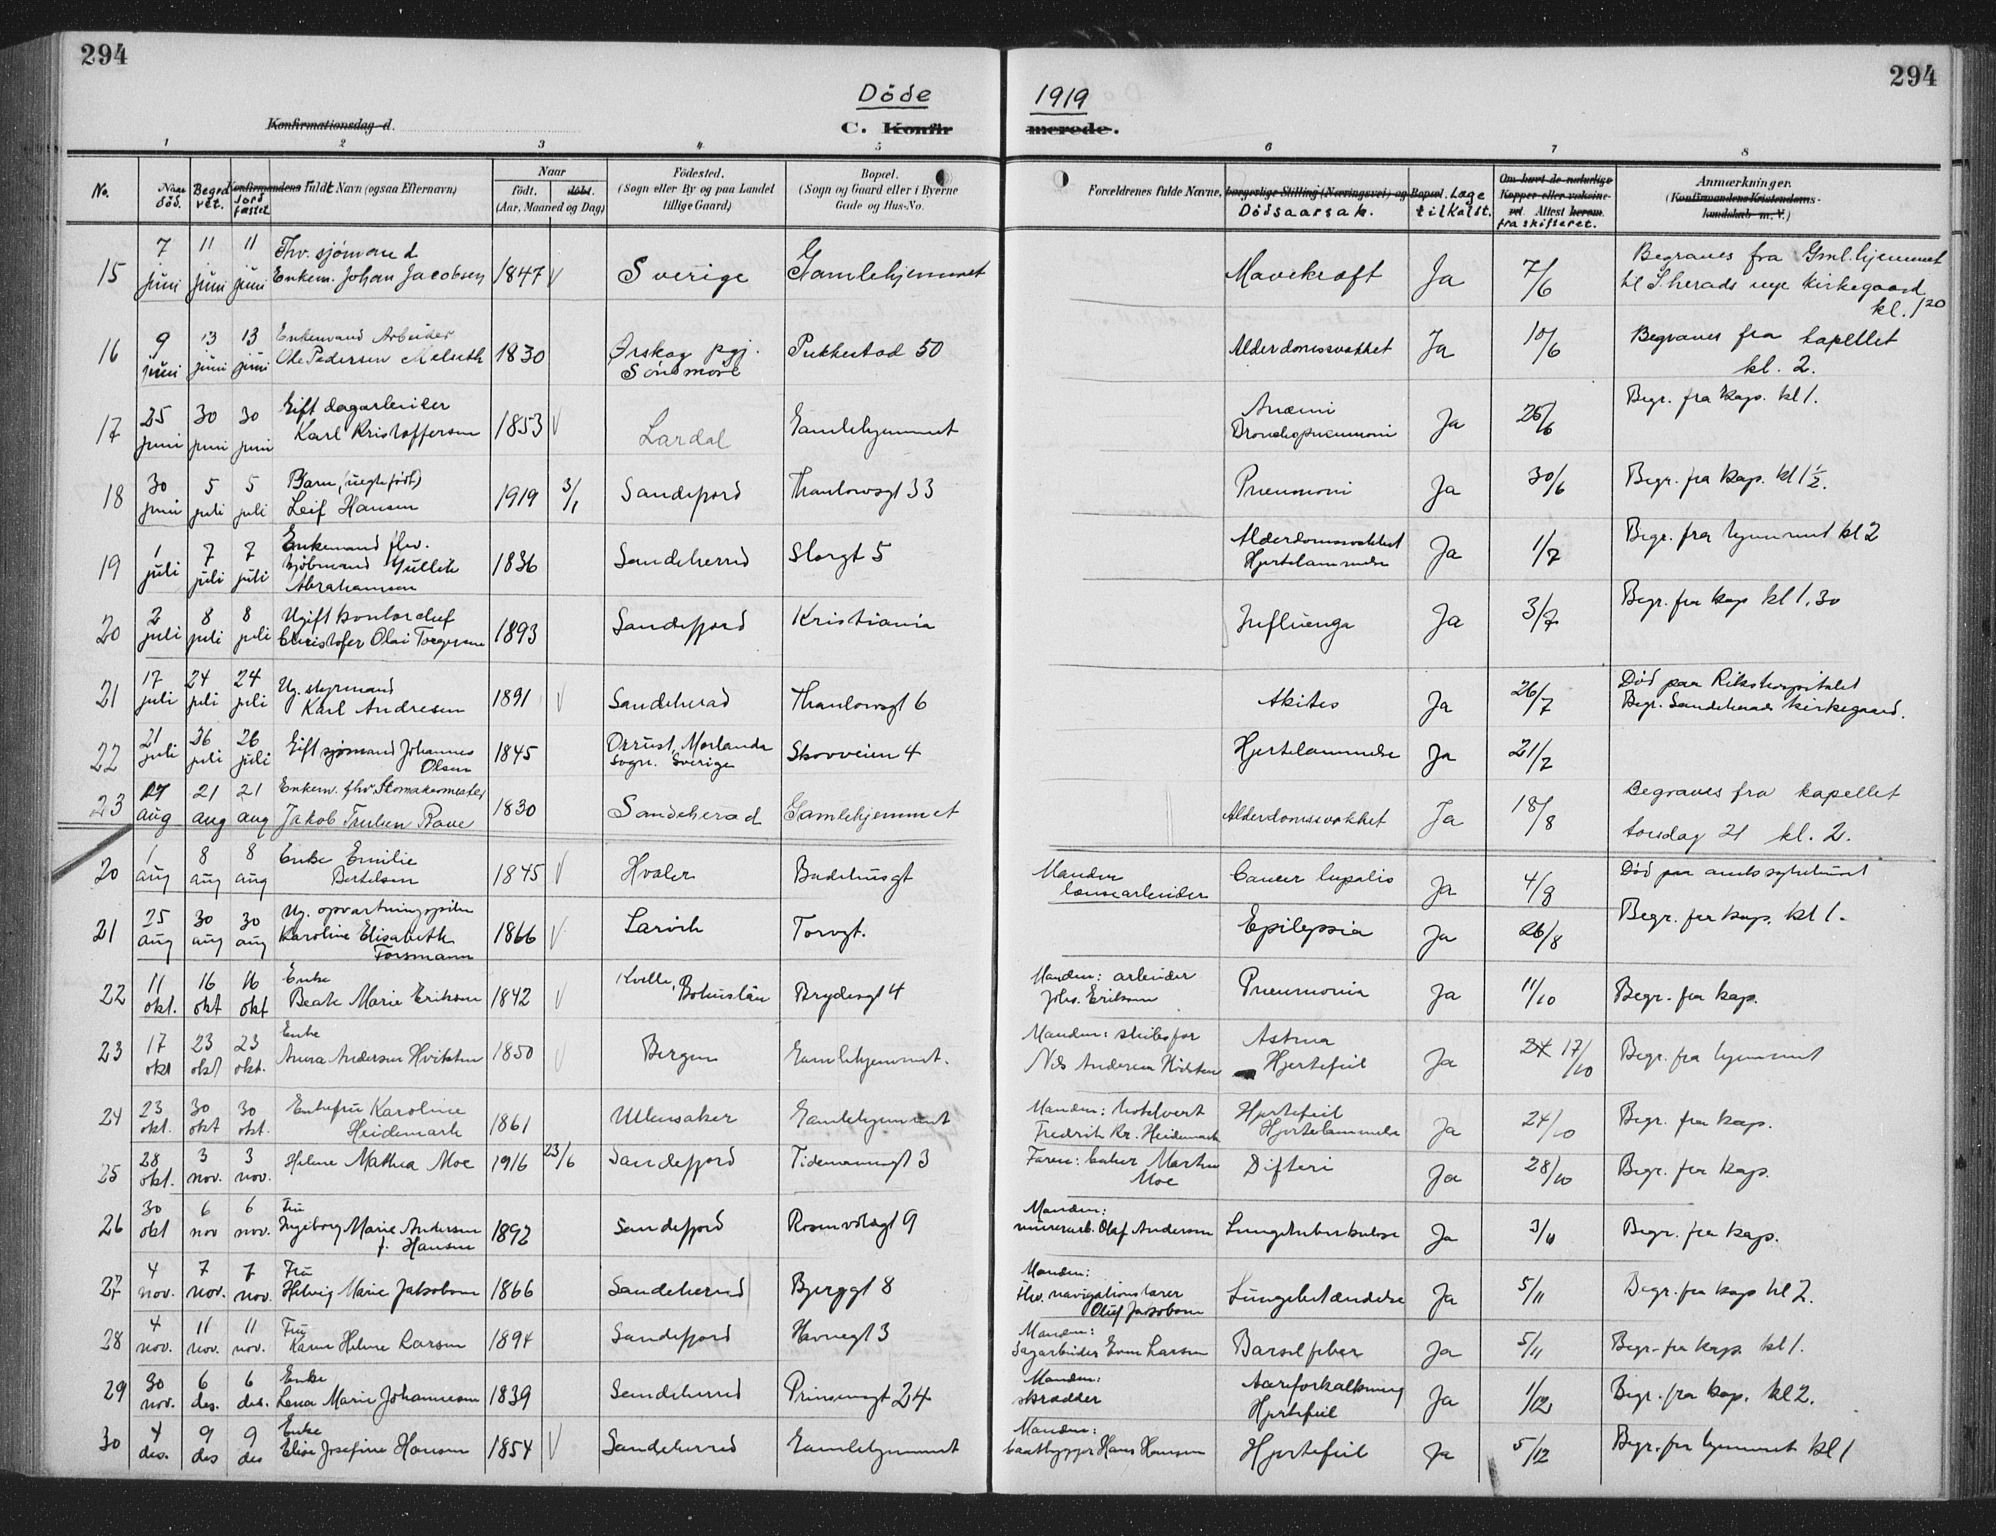 294
294
Döde 1919
Konfirmationsdag d.
C. Konfirmerede.
1 2 3 4 5 6 7 8
No. Naar död. Begravet. Jordfæstet Konfirmandens fulde Navn (ogsaa Efternavn) Naar født. døbt. (Aar, Maaned og Dag) Födested. (Sogn eller By og paa Landet tillige Gaard) Bopæl. (Sogn og Gaard eller i Byerne Gade og Hus-No. Forældrenes fulde Navne, borgerlige Stilling (Næringsvei) og Bopæl. Dödsaarsak. Læge tilkaldt. Om havt de naturlige Kopper eller vaksineret. Attest herom. fra skifteret. Anmærkninger. (Konfirmandens Kristendomskundskab m. V.)
15 7 juni 11 juni 11 juni Fhv. sjömand Enkem. Johan Jacobsen 1847 V Sverige Gamlehjemmet Mavekræft Ja 7/6 Begraves fra Gml.hjemmet til S.herads nye kirkegaard kl. 1 20
16 9 juni 13 juni 13 juni Enkemand Arbeider Ole Pedersen 1830 Ørskog pgj. Söndmöre Pukkestad 50 Alderdomssvakhet Ja 10/6 Begraves fra kapellet kl. 2.
17 25 juni 30 juni 30 juni Gift dagarbeider Karl Kristoffersen 1853 V Lardal Gamlehjemmet Anæmi Bronchopneumoni Ja 26/6 Begr. fra kap. kl 1.
18 30 juni 5 juli 5 juli Barn (uegte født) Leif Hansen 1919 3/1 Sandefjord Thaulowsgt 33 Pneumoni Ja 30/6 Begr. fra kap. kl 1 1/2.
19 1 juli 7 juli 7 juli Enkemand fhv. kjöbmand Gullik Abrahamsen 1836 Sandeherred Storgt 5 Alderdomssvakhet Hjertelammelse Ja 1/7 Begr. fra hjemmet kl 2
20 2 juli 8 juli 8 juli Ugift kontorchef Christofer Olai Torgersen 1893 Sandefjord Kristiania Influenza Ja 3/7 Begr. fra kap kl 1,30
21 17 juli 24 juli 24 juli Ug. styrmand Karl Andresen 1891 V Sandeherad Thaulowsgt 6 Akites Ja 26/7 Død paa Rikshospitalet Begr. Sandeherads kirkegaard.
22 21 juli 26 juli 26 juli Gift sjømand Johannes Olsen 1845 Orrust, Morlanda Sogn. Sverige Skovveien 4 Hjertelammelse Ja 21/7
23 17 aug 21 aug 21 aug Enkem. fhv. Skomakermester Jakob Trulsen Rove 1830 Sandeherad Gamlehjemmet Alderdomssvakhet Ja 18/8 Begraves fra kapellet torsdag 21 kl. 2.
20 1 aug 8 aug 8 aug Enke Emilie Bertelsen 1845 V Hvaler Badehusgt Manden lænsearbeider Cancer Ja 4/8 Død paa amtssykehuset
21 25 aug 30 aug 30 aug Ug. opvartningspike Karoline Elisabeth Forsmann 1866 V Larvik Torvgt. Epilepsia Ja 26/8 Begr. fra kap. kl 1.
22 11 okt. 16 okt 16 okt Enke Beate Marie Eriksen 1842 V Kville, Bohuslän Brydesgt 4 Manden: arbeider Johs. Eriksen Pneumonia Ja 11/10 Begr. fra kap.
23 17 okt 23 okt 23 okt. Enke Anna Andersen Hvidsten 1850 V Bergen Gamlehjemmet. Manden: skibsfør Nils Andersen Hvidsten Astma Hjertefeil Ja 24 17/10 Begr. fra hjemmet
24 23 okt. 30 okt 30 okt. Enkefru Karoline Heidemark 1861 Ullensaker Gamlehjemmet Manden: hotelvert Fredrik Kr. Heidemark Hjertefeil Hjertelammelse Ja 24/10 Begr. fra kap.
25 28 okt. 3 nov. 3 nov. Helene Mathea Moe 1916 23/6 Sandefjord Tidemannsgt 3 Faren: baker Martin Moe Difteri Ja 28/10 Begr. fra kap.
26 30 okt 6 nov 6 nov. Fru Ingeborg Marie Andersen f. Hansen 1892 Sandefjord Rosenvoldsgt 9 Manden: murerarb. Olaf Andersen Lungetuberkulose Ja 3/11 Begr. fra kap.
27 4 nov. 7 nov. 7 nov. Fru Helvig Marie Jakobsen 1866 Sandeherred Bjerggt 8 Manden: fhv. navigationslærer Oluf Jakobsen Lungebetændelse Ja 5/11 Begr. fra kap kl 2.
28 4 nov. 11 nov. 11 nov. Fru Karen Helene Larsen 1894 Sandefjord Havnegt 3 Manden: Sagarbeider Even Larsen Barselfeber Ja 5/11 Begr. fra kap. kl 1.
29 30 nov. 6 des. 6 des. Enke Lena Marie Johannesen 1839 Sandeherred Prinsensgt 24 Manden: skrædder Aareforkalkning Hjertefeil Ja 1/12 Begr. fra kap. kl 2.
30 4 des. 9 des 9 des Enke Elise Josefine Hansen 1854 V Sandeherred Gamlehjemmet Manden: baatbygger Hans Hansen Hjertefeil Ja 5/12 Begr. fra hjemmet kl 1